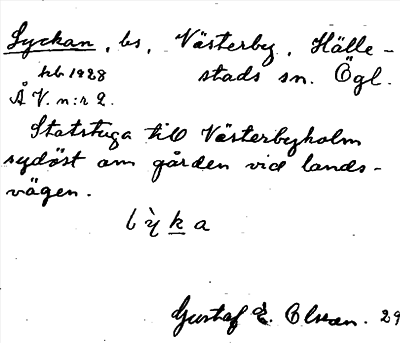 Lyckan, bs, Västerby, Hälle-
hb 1928 stads sn. Ögl.
Å V. n:r 2.
Statstuga till Västerbyholm
sydöst om gården vid lands-
vägen.
lỳka
Gustaf E. Olsson. 29